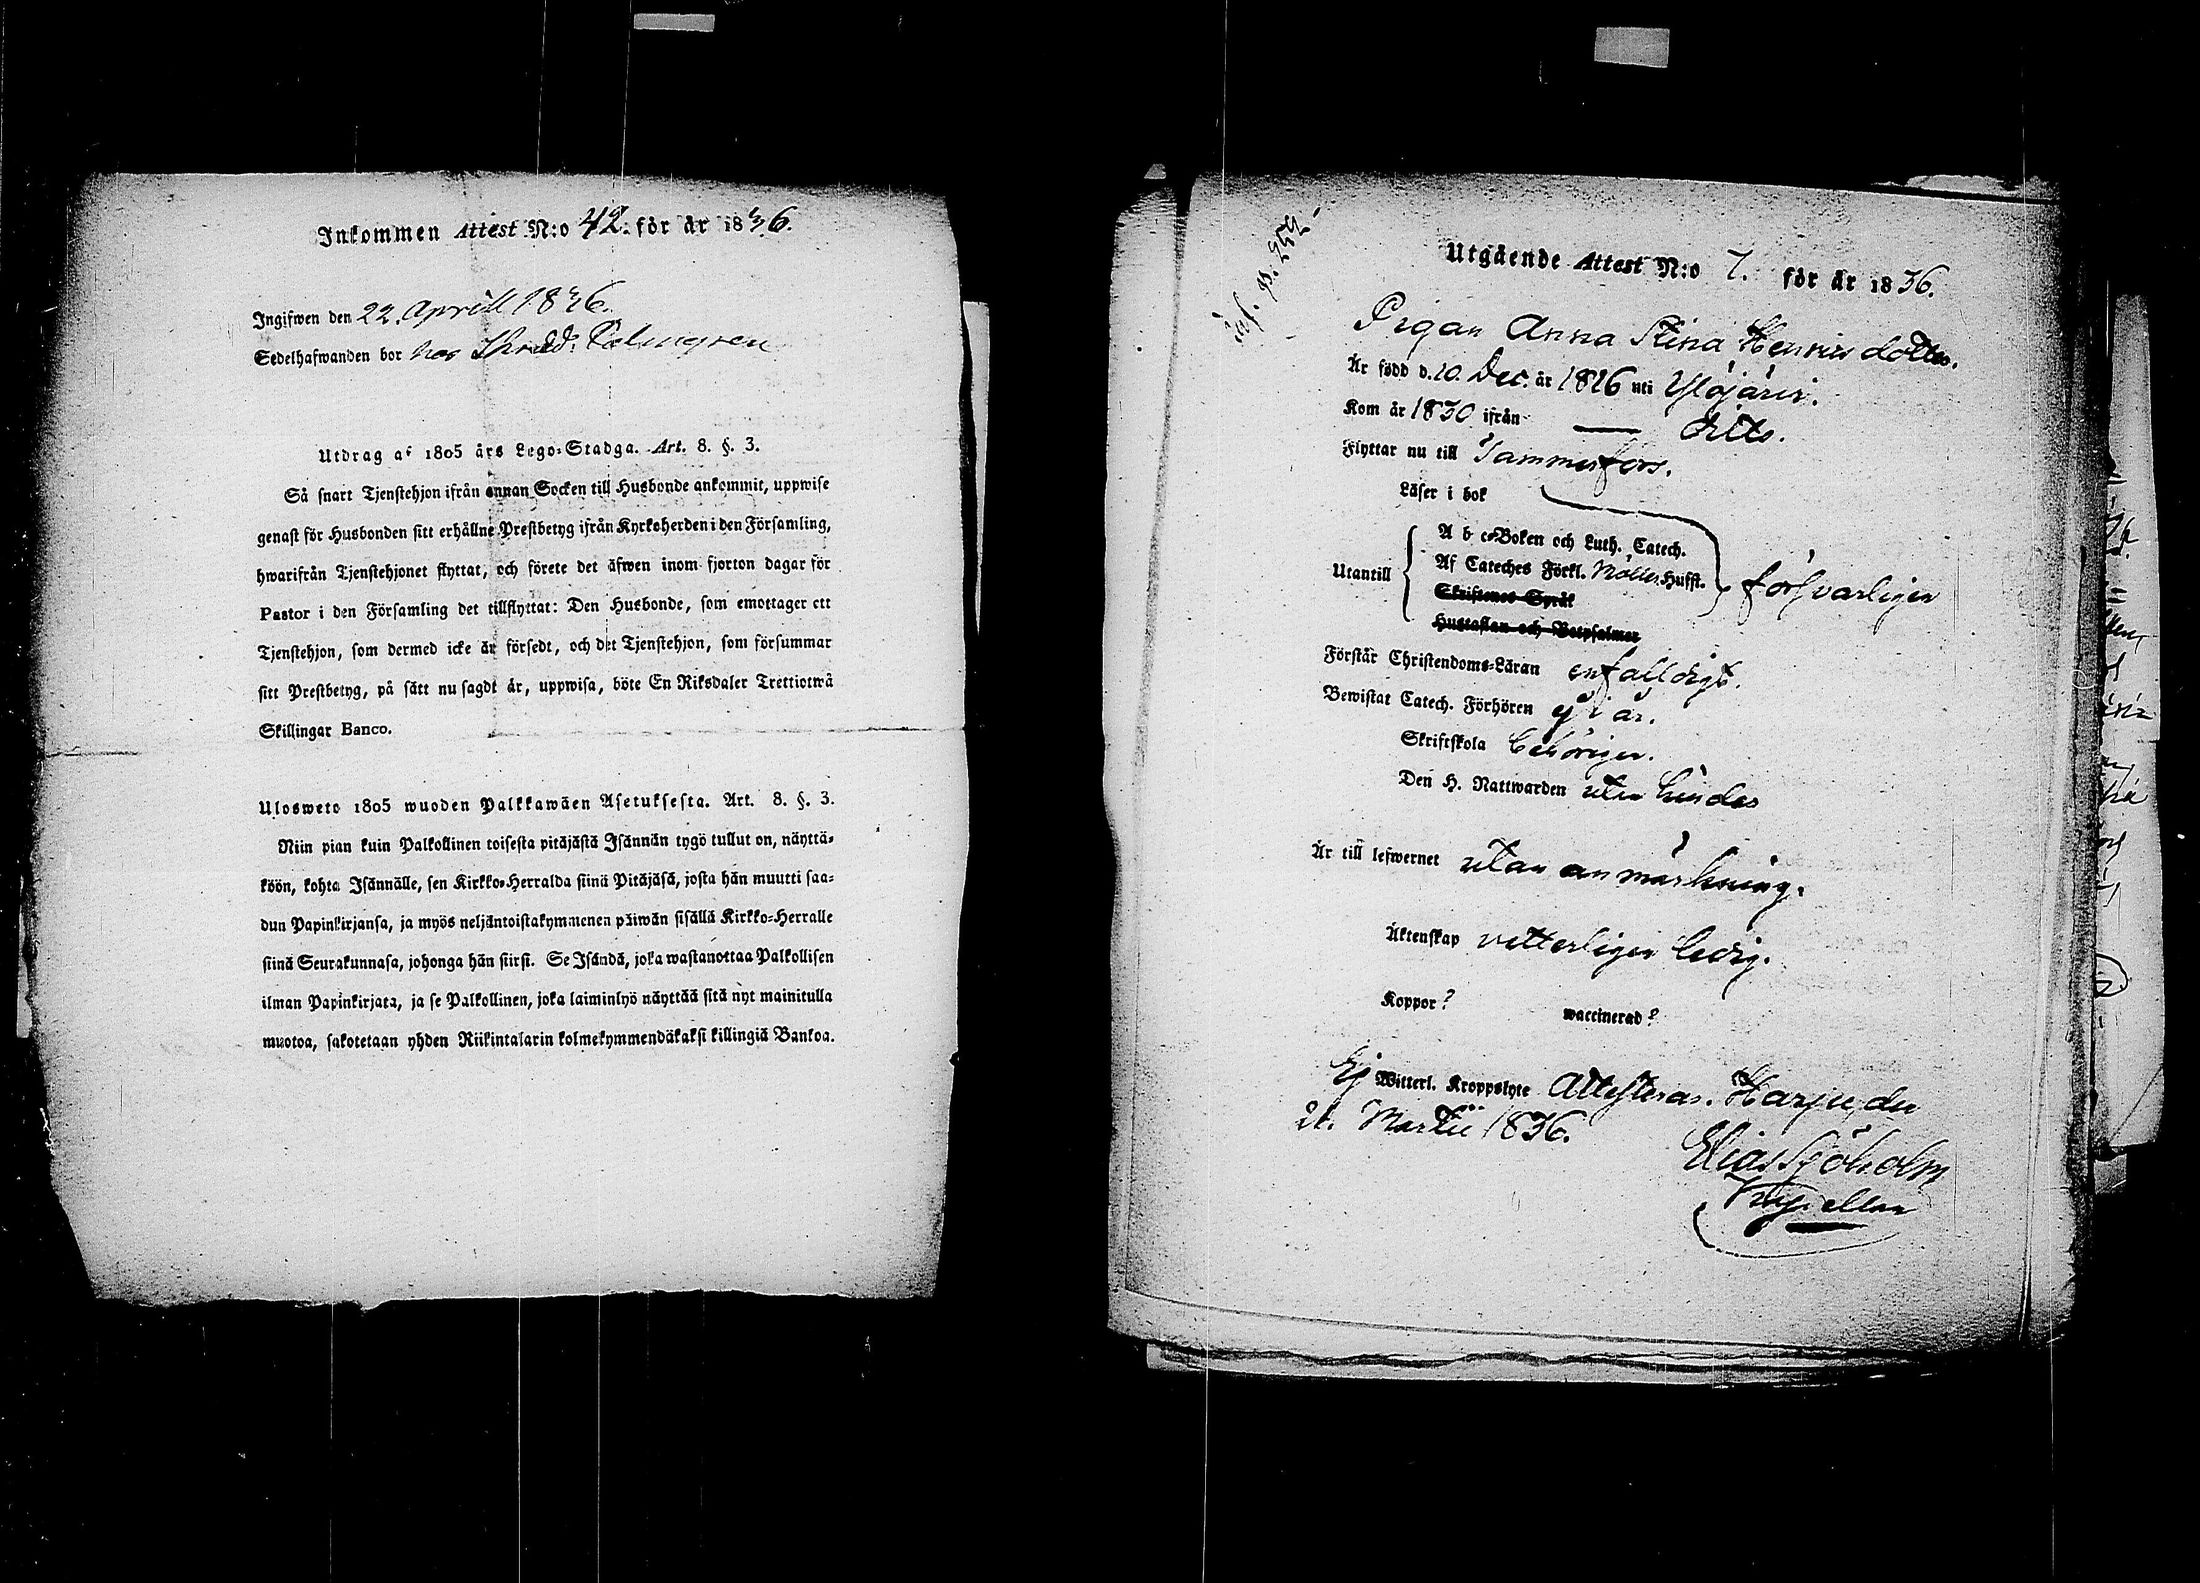 Inkommen Attest N:o 42. för år 1836.
Ingifwen den 22. Aprill 1836.
Sedelhafwanden bor hos Skradd. Palmgren
Utdrag af 1805 års Lego-Stadga. Art. 8. §. 3.
Så snart Tjenstehjon ifrån annan Socken till Husbonde ankommit, uppwise
genast för Husbonden sitt erhållne Prestbetyg ifrån Kyrkoherden i den Församling,
hwarifrån Tjenstehjonet flyttat, och förete det äfwen inom fjorton dagar för
Pastor i den Församling det tillflyttat: Den Husbonde, som emottager ett
Tjenstehjon, som dermed icke är försedt, och det Tjenstehjon, som försummar
sitt Prestbetyg, på sätt nu sagdt är, uppwisa, böte En Riksdaler Trettiotwå
Skillingar Banco.
Ulosweto 1805 wuoden Palkkawäen Asetuksesta. Art. 8. §. 3.
Niin pian kuin Palkollinen toisesta pitäjästä Isännän tygö tullut on, näyttä-
köön, kohta Isännälle, sen Kirkko-Herralda siinä Pitäjäsä, josta hän muutti saa-
dun Papinkirjansa, ja myös neljäntoistakymmenen päiwän sisällä Kirkko-Herralle
siinä Seurakunnasa, johonga hän siirsi. Se Isändä, joka wastanottaa Palkollisen
ilman Papinkirjata, ja se Palkollinen, joka laiminlyö näyttää sitä nyt mainitulla
muotoa, sakotetaan yhden Riikintalarin kolmekymmendäkaksi killingiä Bankoa.
inf. p. 252.
Utgående Attest N:o 7. för år 1836.
Pigan Anna Stina Henricsdotter.
Är född d. 10. Dec. år 1816 uti Ylöjärvi.
Kom år 1830 ifrån — dito.
Flyttar nu till Tammerfors.
Läser i bok
A b c-Boken och Luth. Catech.
Utantill Af Cateches Förkl. Möller, Husst. försvarligen
Skriftenes Språk
Hustaflan och Botpsalmer
Förstår Christendoms-Läran enfalldigt.
Bewistat Catech. Förhören i år.
Skriftskola behörigen.
Den H. Nattwarden utan hinder
Är till lefwernet utan anmärkning.
Äktenskap vetterligen ledig.
Koppor? waccinerad?
Ej Witterl. Kroppslyte Attesteras. Harju, den
21. Martii 1836.
Elias Sjöholm